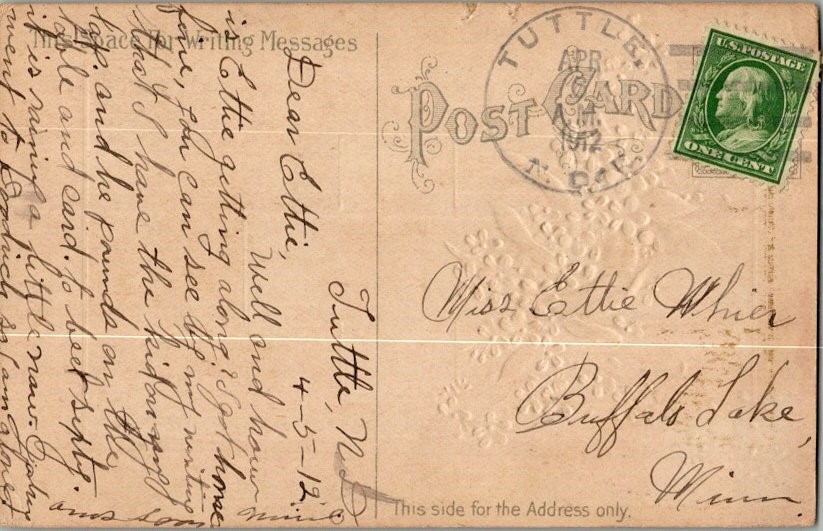 This Space for Writing Messages
POST CARD
TUTTLE,
APR
A.M.
1912
N. DAK.
U.S. POSTAGE
ONE CENT
Tuttle, N.D.
4-5-12
Dear Ettie,
Well and how
is Ettie getting along? I got home
fine, you can see by my writing
that I have the kid on my
lap. and he pounds on the
table and card. to beat
it is raining a little now. Gaby
went to so I am alone
Miss Ettie Whier
Buffalo Lake,
Minn
This side for the Address only.